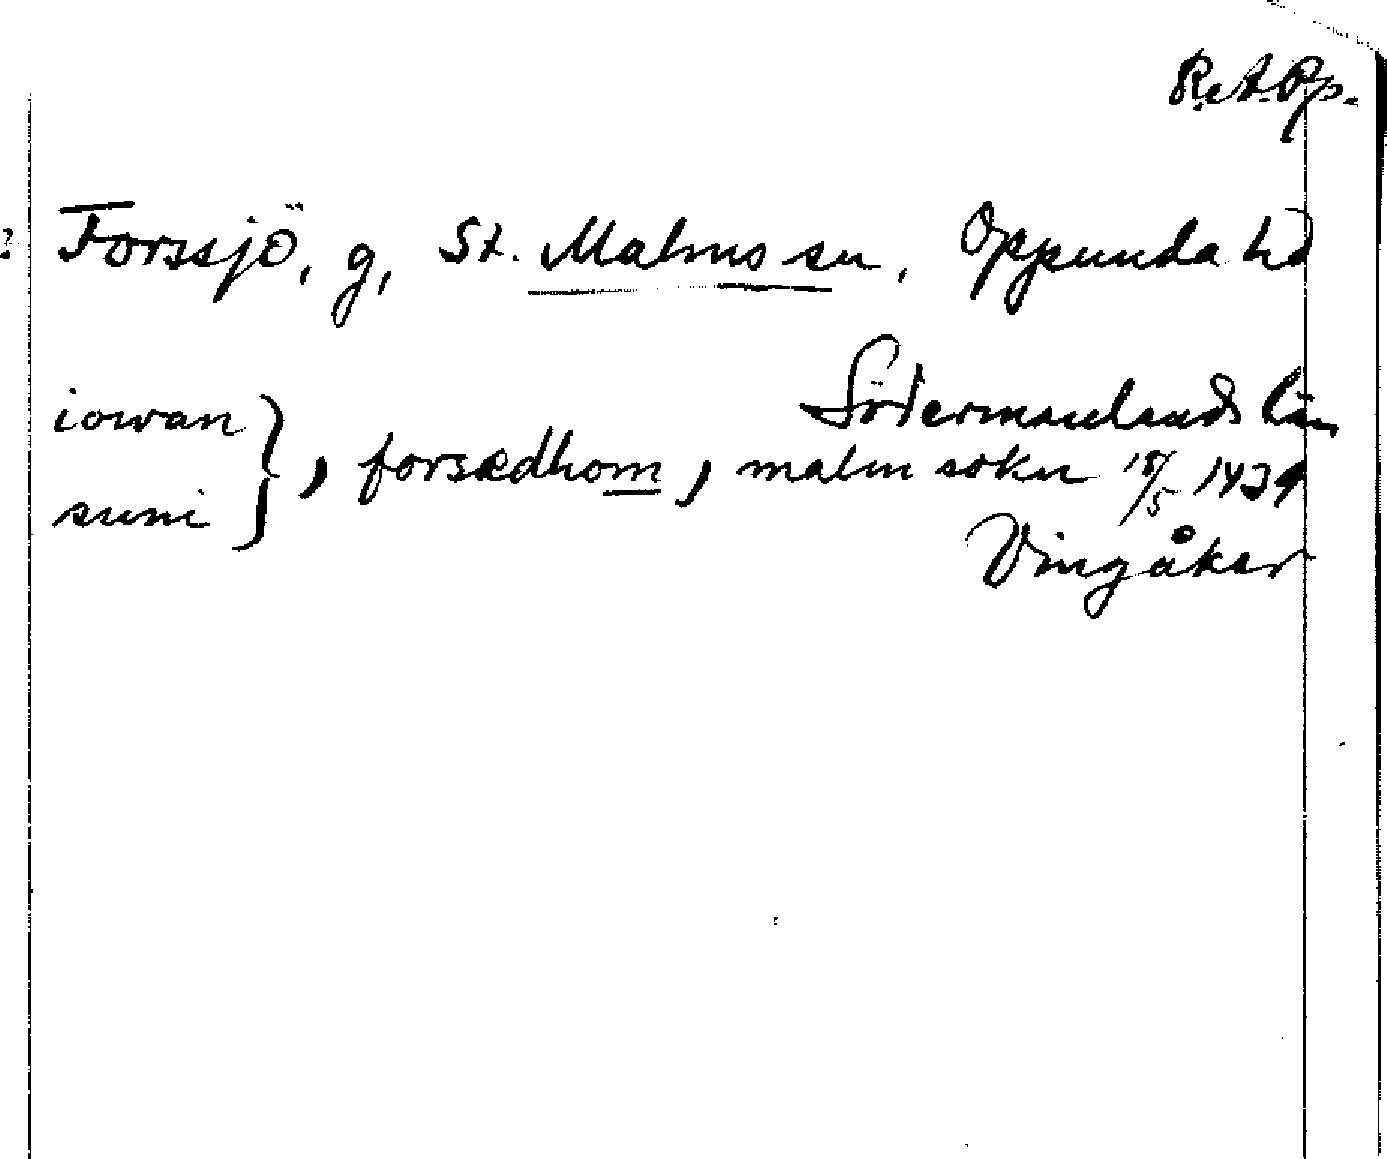 R.A. Pp.
? Forssjö, g, St. Malms sn, Oppunda hd
Södermanlands län
iowan
suni } , forsædhom, malm sokn 18/5 1439
Vingåker